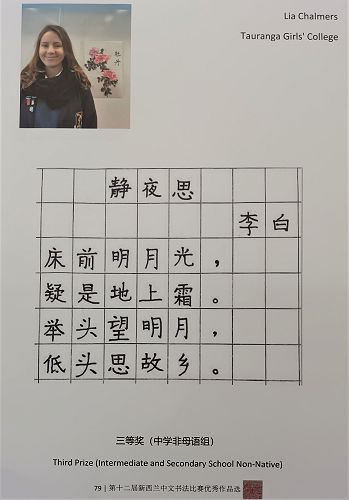 Lia Chalmers
Tauranga Girls' College
牡丹
静夜思
李白
床前明月光，
疑是地上霜。
举头望明月，
低头思故乡。
三等奖（中学非母语组）
Third Prize (Intermediate and Secondary School Non-Native)
79 | 第十二届新西兰中文书法比赛优秀作品选